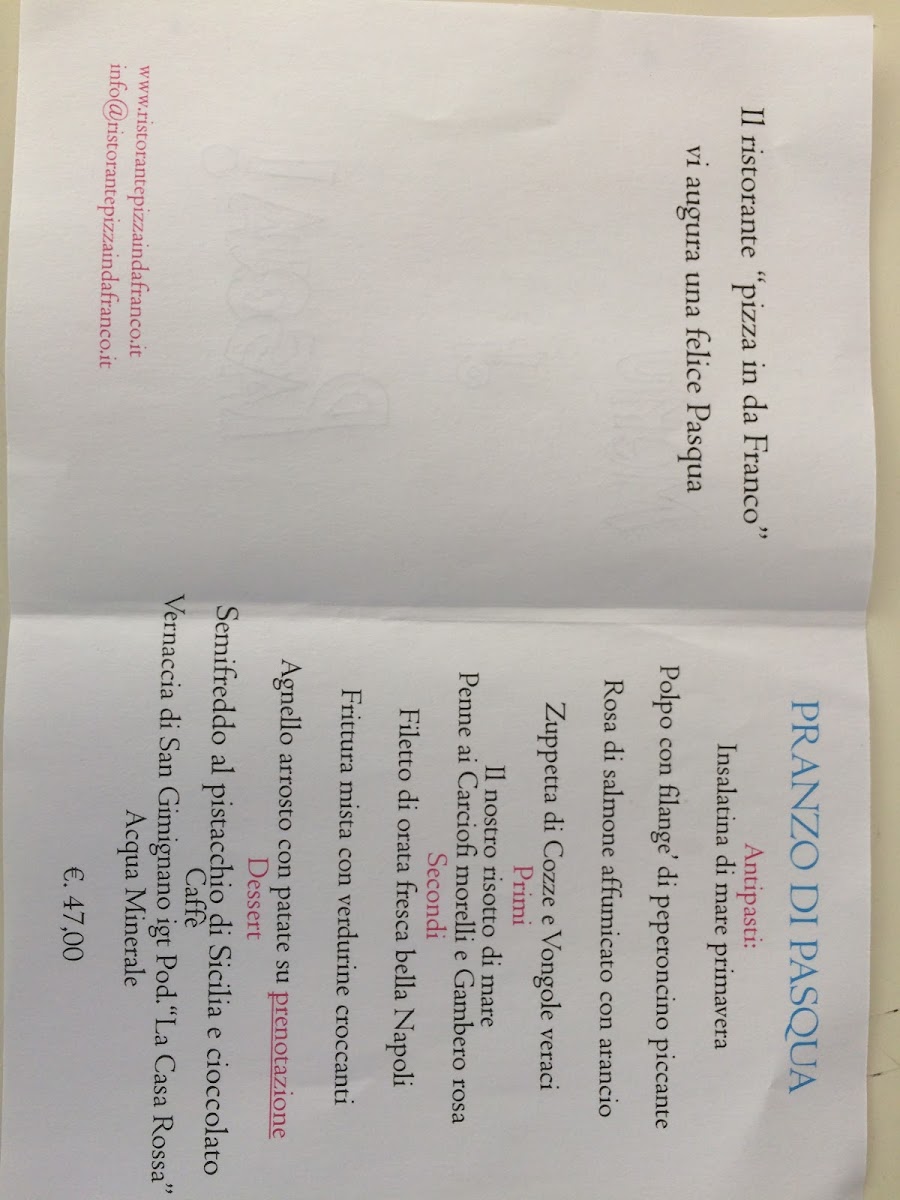 Il ristorante “pizza in da Franco”
vi augura una felice Pasqua
www.ristorantepizzaindafranco.it
info@ristorantepizzaindafranco.it
PRANZO DI PASQUA
Antipasti:
Insalatina di mare primavera
Polpo con filange’ di peperoncino piccante
Rosa di salmone affumicato con arancio
Zuppetta di Cozze e Vongole veraci
Primi
Il nostro risotto di mare
Penne ai Carciofi morelli e Gambero rosa
Secondi
Filetto di orata fresca bella Napoli
Frittura mista con verdurine croccanti
Agnello arrosto con patate su prenotazione
Dessert
Semifreddo al pistacchio di Sicilia e cioccolato
Caffè
Vernaccia di San Gimignano igt Pod.“La Casa Rossa”
Acqua Minerale
€. 47,00